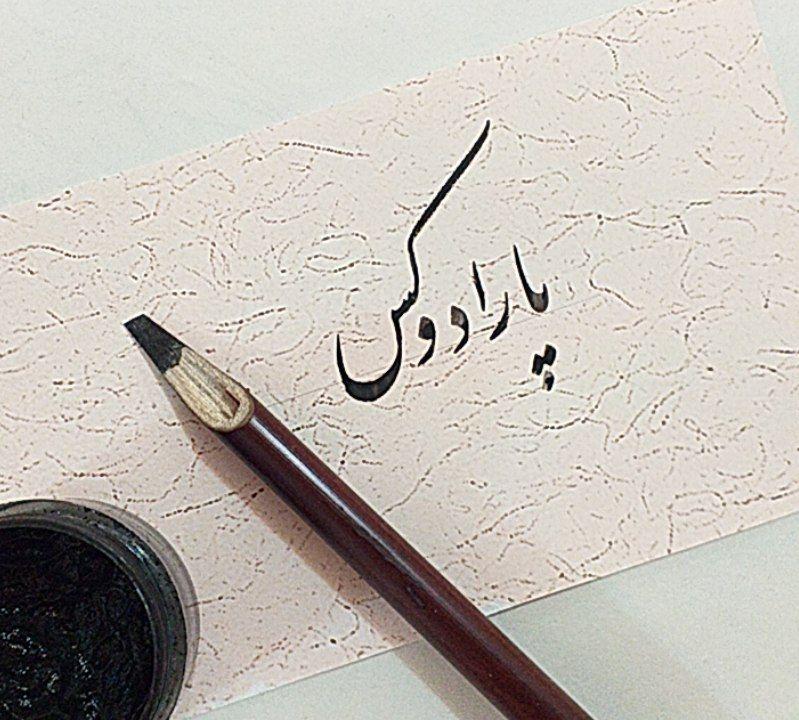 پارادوکس